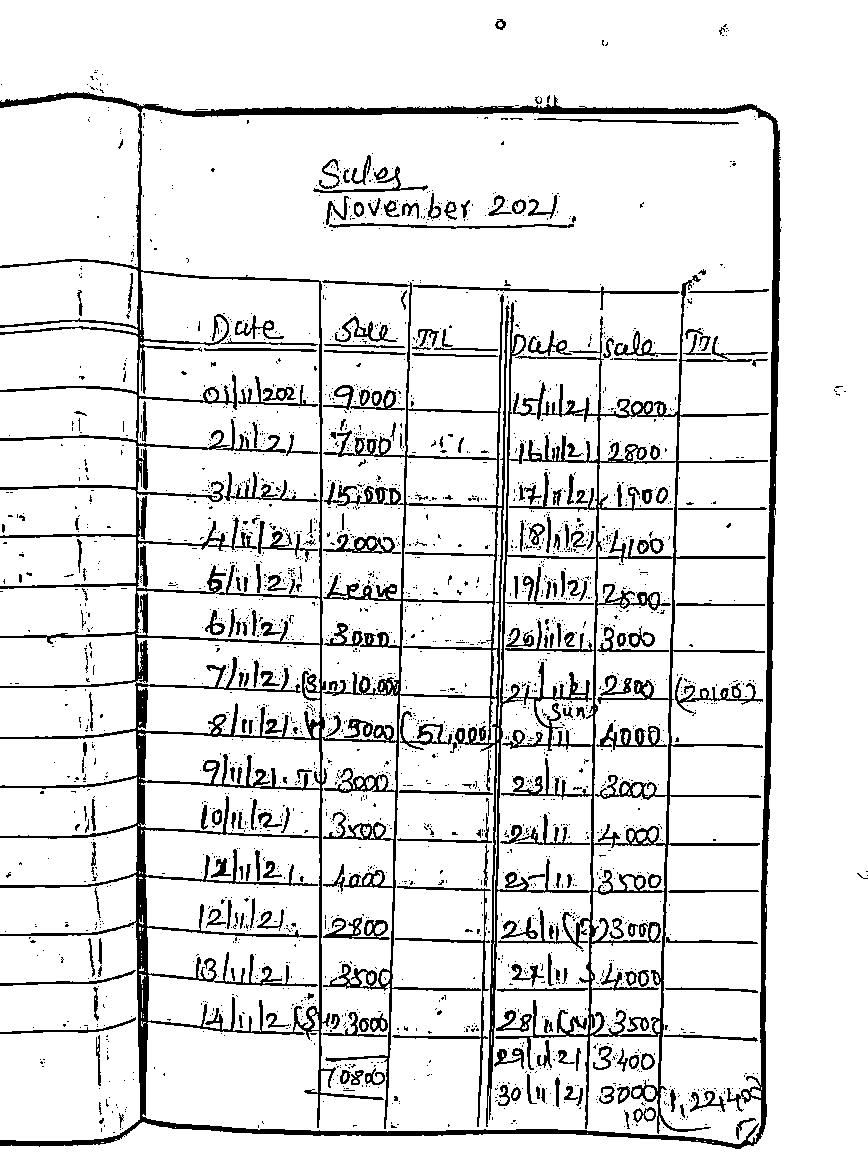 Sales
November 2021.
Date Sale TTL Date Sale TTL
01/11/2021. 9000 15/11/21 3000
2/11/21 7000 16/11/21 2800
3/11/21. 15,000 17/11/21. 1900
4/11/21. 2000 18/11/21. 4100
5/11/21. Leave 19/11/21 2500
6/11/21 3000 20/11/21. 3000
7/11/21. (Sun) 10,000 21/11/21 (Sun) 2800 (20100)
8/11/21. 5000 (51,000) 22/11 4000
9/11/21. TU 3000 23/11 3000
10/11/21 3500 24/11 4000
4000 25/11 3500
12/11/21. 2800 26/11 3000
13/11/21 3500 27/11 4000
14/11/2 3000 28/11 (Sun) 3500
29/11/21 3400
70800 30/11/21 3000 (1,22,400)
100